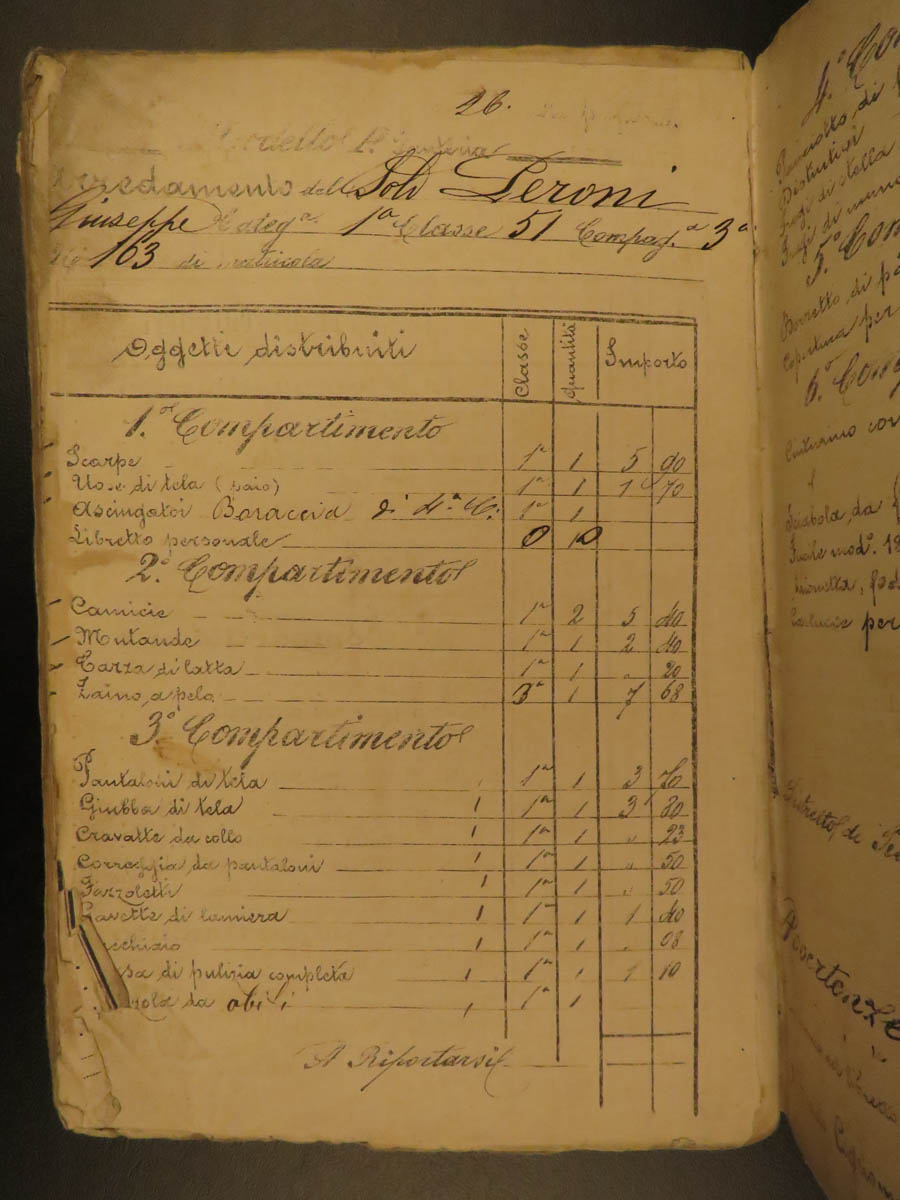 26.
Modello P. Fanteria
rredamento del Sold Peroni
Giuseppe Categª 1ª Classe 51 Compagª 3ª
163 di matricola
Oggetti distribuiti Classe Quantità Importo
1º Compartimento
Scarpe 1ª 1 5 90
Uose di tela (paio) 1ª 1 1 70
Asciugatoi Boraccia di 4ª C. 1ª 1
Libretto personale 0 10
2º Compartimento
Camicie 1ª 2 5 40
Mutande 1ª 1 2 40
Tazza di latta 1ª 1 " 20
Zaino a pelo 3ª 1 7 68
3º Compartimento
Pantaloni di tela 1ª 1 3 70
Giubba di tela 1ª 1 3 30
Cravatte da collo 1ª 1 " 23
Correggia da pantaloni 1ª 1 " 50
Fazzoletti 1ª 1 " 50
Gavette di lamiera 1ª 1 1 40
cchiaio 1ª 1 " 08
sa di pulizia completa 1ª 1 1 10
ola da abiti 1ª 1
A Riportarsi
4º Co
5º Com
Berretto di pa
Copertura per
6º Comp
Cinturino con
Sciabola da
Fucile modº. 18
per
Distretto di Te
Avvertenze